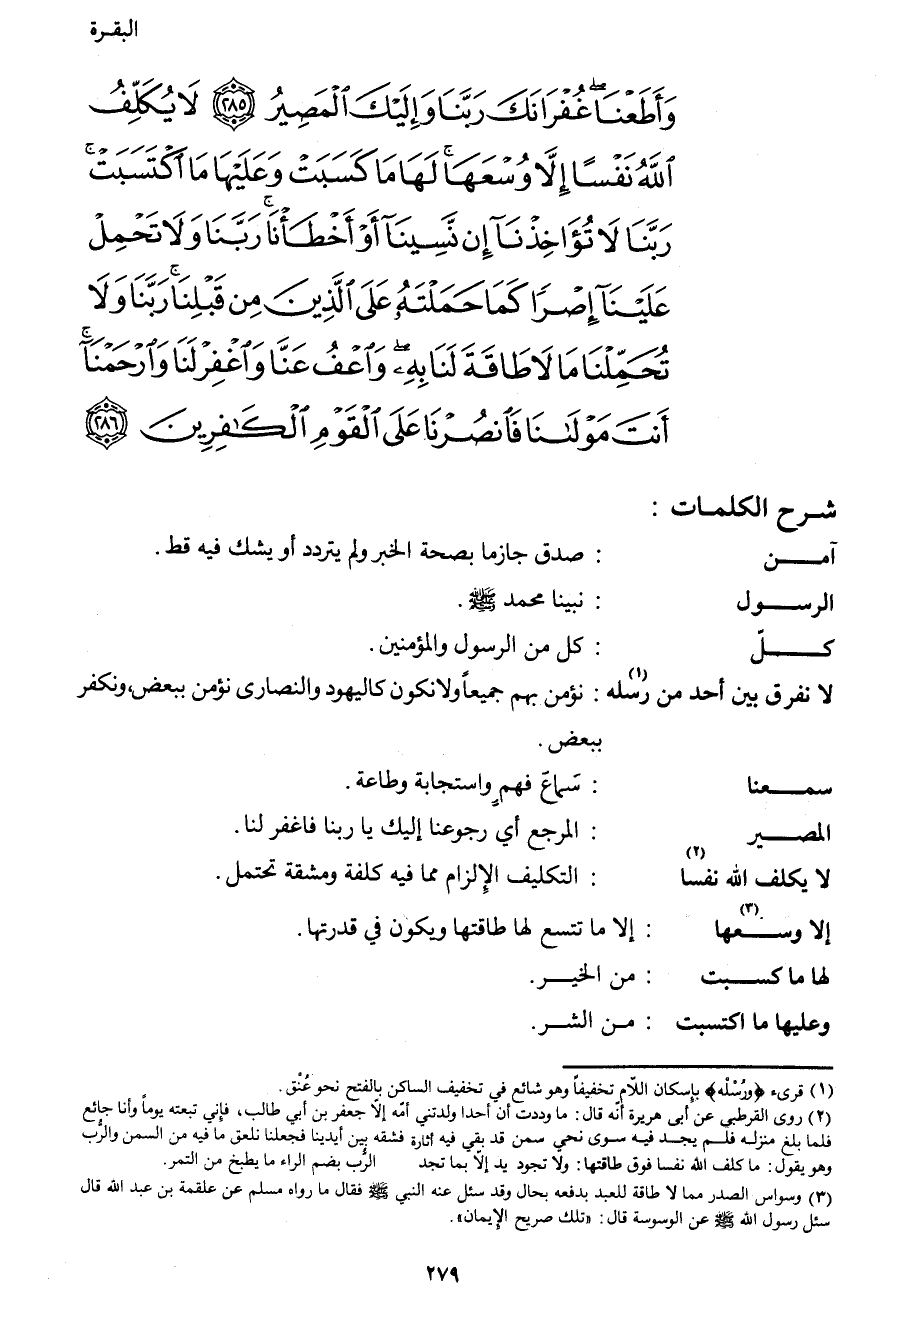 البقـرة
وَأَطَعْنَا غُفْرَانَكَ رَبَّنَا وَإِلَيْكَ ٱلْمَصِيرُ ٢٨٥ لَا يُكَلِّفُ
ٱللَّهُ نَفْسًا إِلَّا وُسْعَهَا ۚ لَهَا مَا كَسَبَتْ وَعَلَيْهَا مَا ٱكْتَسَبَتْ ۗ
رَبَّنَا لَا تُؤَاخِذْنَآ إِن نَّسِينَآ أَوْ أَخْطَأْنَا ۚ رَبَّنَا وَلَا تَحْمِلْ
عَلَيْنَآ إِصْرًا كَمَا حَمَلْتَهُۥ عَلَى ٱلَّذِينَ مِن قَبْلِنَا ۚ رَبَّنَا وَلَا
تُحَمِّلْنَا مَا لَا طَاقَةَ لَنَا بِهِۦ ۖ وَٱعْفُ عَنَّا وَٱغْفِرْ لَنَا وَٱرْحَمْنَآ ۚ
أَنتَ مَوْلَىٰنَا فَٱنصُرْنَا عَلَى ٱلْقَوْمِ ٱلْكَٰفِرِينَ ٢٨٦
شـرح الكلمـات :
آمــــن : صدق جازما بصحة الخبر ولم يتردد أو يشك فيه قط.
الرســـول : نبينا محمد ﷺ .
كـــــلّ : كل من الرسول والمؤمنين.
لا نفرق بين أحد من رسله (١) : نؤمن بهم جميعاً ولانكون كاليهود والنصارى نؤمن ببعض،ونكفر
ببعض .
سمـــعنا : سَماعَ فهمٍ واستجابة وطاعة.
المصـــير : المرجع أي رجوعنا إليك يا ربنا فاغفر لنا.
لا يكلف الله نفسا (٢) : التكليف الإلزام مما فيه كلفة ومشقة تحتمل.
إلا وســـعها (٣) : إلا ما تتسع لها طاقتها ويكون في قدرتها.
لها ما كســـبت : من الخيـــر.
وعليها ما اكتسبت : مـن الشـــر.
(١) قرىء ﴿ورُسْلْه﴾ بإسكان اللّام تخفيفاً وهو شائع في تخفيف الساكن بالفتح نحو عُنْق.
(٢) روى القرطبي عن أبى هريرة أنّه قال: ما وددت أن أحدا ولدتني أمّه إلّا جعفر بن أبي طالب، فإني تبعته يوماً وأنا جائع
فلما بلغ منزله فلـم يجـد فيـه سـوى نحي سمن قد بقي فيه أثارة فشقه بين أيدينا فجعلنا نلعق ما فيه من السمن والرُّب
وهو يقول: ما كلف الله نفسا فوق طاقتها: ولا تجود يد إلّا بما تجد الرُّب بضم الراء ما يطبخ من التمر.
(٣) وسواس الصدر مما لا طاقة للعبد بدفعه بحال وقد سئل عنه النبي ﷺ فقال ما رواه مسلم عن علقمة بن عبد الله قال
سئل رسول الله ﷺ عن الوسوسة قال: «تلك صريح الإيمان».
٢٧٩